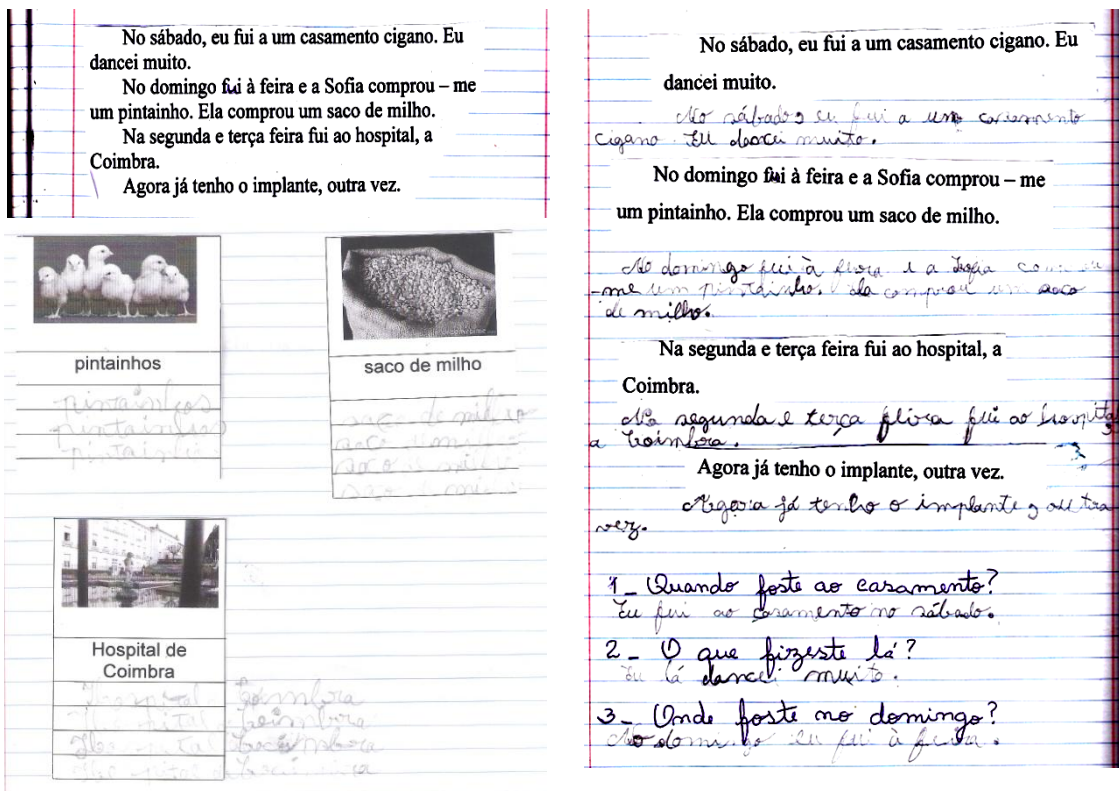 No sábado, eu fui a um casamento cigano. Eu
dancei muito.
No domingo fui à feira e a Sofia comprou – me
um pintainho. Ela comprou um saco de milho.
Na segunda e terça feira fui ao hospital, a
Coimbra.
Agora já tenho o implante, outra vez.
pintainhos
pintainhos
pintainhos
pintainho
saco de milho
saco de milho
saco milho
saco milho
saco milho
Hospital de
Coimbra
Hospital Coimbra
Hospital Coimbra
Hospital Coimbra
Hospital Coimbra
No sábado, eu fui a um casamento cigano. Eu
dancei muito.
No sábado, eu fui a um casamento
cigano. Eu dancei muito.
No domingo fui à feira e a Sofia comprou – me
um pintainho. Ela comprou um saco de milho.
No domingo fui à feira e a Sofia
-me um pintainho. Ela comprou um saco
de milho.
Na segunda e terça feira fui ao hospital, a
Coimbra.
Na segunda e terça feira fui ao hospital,
a Coimbra.
Agora já tenho o implante, outra vez.
Agora já tenho o implante, outra
vez.
1_ Quando foste ao casamento?
Eu fui ao casamento no sábado.
2_ O que fizeste lá?
Eu lá dancei muito.
3_ Onde foste no domingo?
No domingo eu fui à feira.